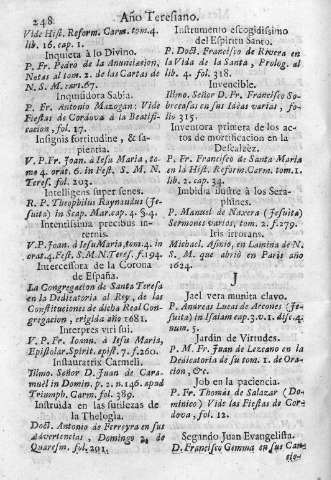 248 Año Teresiano.
Vide Hist. Reform. Carm. tom. 4.
lib. 16. cap. 1.
Inquieta à lo Divino.
P. Fr. Pedro de la Anunciacion,
Notas al tom. 2. de las Cartas de
N. S. M. cart. 67.
Inquiridora Sabia.
P. Fr. Antonio Mazogan: Vide
Fiestas de Cordova à la Beatifi-
cacion, fol. 17.
Insignis fortitudine, & sa-
pientia.
V. P. Fr. Joan. à Jesu Maria, to-
mo 4. orat. 6. in Fest. S. M. N.
Teres. fol. 203.
Intelligens super senes.
R. P. Theophilus Raynaudus (Je-
suita) in Scap. Mar. cap. 4. §. 4.
Intentissima precibus in-
ternis.
V. P. Joan. à Jesu Maria, tom. 4. in
orat. 4. Fest. S. M. N. Teres. f. 194.
Intercessora de la Corona
de España.
La Congregacion de Santa Teresa
en la Dedicatoria al Rey, de las
Constituciones de dicha Real Con-
gregacion, erigida año 1681.
Interpres viri sui.
V. P. Fr. Joann. à Jesu Maria,
Epistolar. Spirit. epist. 7. f. 260.
Instauratrix Carmeli.
Illmo. Señor D. Juan de Cara-
muel in Domin. p. 2. n. 146. apud
Triumph. Carm. fol. 389.
Instruida en las sutilezas de
la Thelogia.
Doct. Antonio de Ferreyra en sus
Advertencias, Domingo 2. de
Quaresm. fol. 291.
Instrumento escogidissimo
del Espiritu Santo.
P. Doct. Francisco de Rivera en
la Vida de la Santa, Prolog. al
lib. 4. fol. 318.
Invencible.
Illmo. Señor D. Fr. Francisco So-
breceasas en sus Ideas varias, fo-
lio 315.
Inventora primera de los ac-
tos de mortificacion en la
Descalzèz.
P. Fr. Francisco de Santa Maria
en la Hist. Reform. Carm. tom. 1.
lib. 2. cap. 34.
Imbidia ilustre à los Sera-
phines.
P. Manuel de Naxera (Jesuita)
Sermones varios, tom. 2. f. 279.
Iris irrorans.
Michael. Asinio, en Lamina de N.
S. M. que abriò en Paris año
1624.
J
Jael vera munita clavo.
P. Andreas Lucas de Arcones (Je-
suita) in Isaiam cap. 3. v. 1. disc. 4.
num. 5.
Jardin de Virtudes.
P. M. Fr. Juan de Lezcano en la
Dedicatoria de su tom. 1. de Ora-
cion, &c.
Job en la paciencia.
P. Fr. Thomàs de Salazar (Do-
minico) Vide las Fiestas de Cor-
dova, fol. 12.
Segando Juan Evangelista.
D. Francisco Gemma en sus Can-